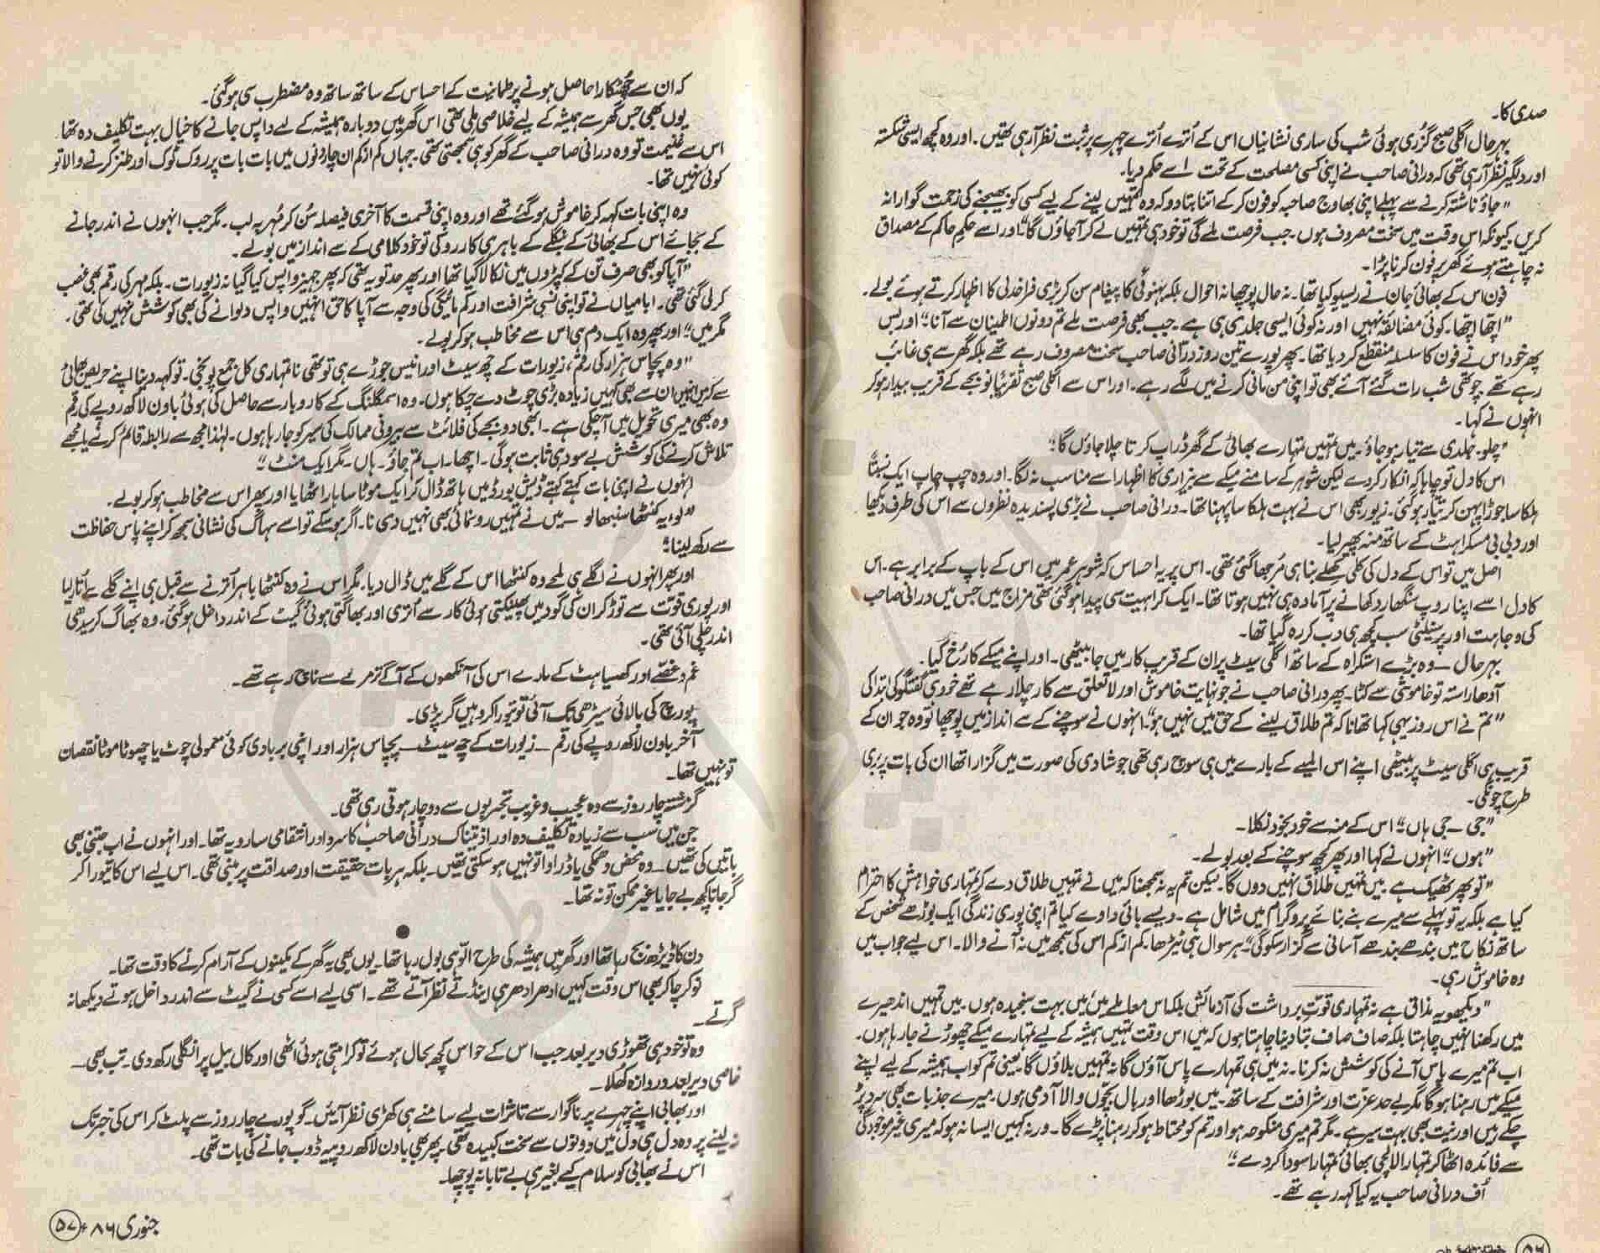 صدی کا۔
بہرحال اگلی صبح گزری ہوئی شب کی ساری نشانیاں اس کے اُترے اُترے چہرے پر ثبت نظر آ رہی تھیں۔ اور وہ کچھ ایسی شکستہ
اور دلگیر نظر آ رہی تھی کہ درانی صاحب نے اپنی کسی مصلحت کے تحت اسے حکم دیا۔
"جاؤ ناشتہ کرنے سے پہلے اپنی بھاوج صاحبہ کو فون کر کے اتنا بتا دو کہ وہ تمہیں لینے کے لیے کسی کو بھیجنے کی زحمت گوارا نہ
کریں۔ کیونکہ اس وقت میں سخت مصروف ہوں۔ جب فرصت ملے گی تو خود ہی تمہیں لے کر آ جاؤں گا" اور اسے حکمِ حاکم کے مصداق
نہ چاہتے ہوئے گھر پر فون کرنا پڑا۔
فون اس کے بھائی جان نے ریسیو کیا تھا۔ نہ حال پوچھا نہ احوال بلکہ بہنوئی کا پیغام سن کر بڑی فراخدلی کا اظہار کرتے ہوئے بولے۔
"اچھا اچھا۔ کوئی مضائقہ نہیں اور نہ کوئی ایسی جلدی ہی ہے۔ جب بھی فرصت ملے تم دونوں اطمینان سے آنا" اور بس
پھر خود اس نے فون کا سلسلہ منقطع کر دیا تھا۔ پھر پورے تین روز درانی صاحب سخت مصروف رہے تھے بلکہ گھر سے ہی غائب
رہے تھے۔ چوتھی شب رات گئے آئے بھی تو اپنی من مانی کرنے میں لگے رہے۔ اور اس سے اگلی صبح تقریباً نو بجے کے قریب بیدار ہو کر
انہوں نے کہا۔
"چلو۔ جلدی سے تیار ہو جاؤ۔ میں تمہیں تمہارے بھائی کے گھر ڈراپ کرتا چلا جاؤں گا"
اس کا دل تو چاہا کہ انکار کر دے لیکن شوہر کے سامنے میکے سے بیزاری کا اظہار اسے مناسب نہ لگا۔ اور وہ چپ چاپ ایک نسبتاً
ہلکا سا جوڑا پہن کر تیار ہو گئی۔ زیور بھی اس نے بہت ہلکا سا پہنا تھا۔ درانی صاحب نے بڑی پسندیدہ نظروں سے اس کی طرف دیکھا
اور دبی دبی مسکراہٹ کے ساتھ منہ پھیر لیا۔
اصل میں تو اس کے دل کی کلی کھلے بنا ہی مرجھا گئی تھی۔ اس پر یہ احساس کہ شوہر عمر میں اس کے باپ کے برابر ہے۔ اس
کا دل اسے اپنا روپ سنگھار دکھانے پر آمادہ ہی نہیں ہوتا تھا۔ ایک کراہیت سی پیدا ہو گئی تھی مزاج میں جس میں درانی صاحب
کی وجاہت اور پرسنلٹی سب کچھ ہی دب کر رہ گیا تھا۔
بہرحال — وہ بڑے استکراہ کے ساتھ اگلی سیٹ پر ان کے قریب کار میں جا بیٹھی۔ اور اپنے میکے کا رُخ کیا۔
آدھا راستہ تو خاموشی سے کٹا۔ پھر درانی صاحب نے جو نہایت خاموش اور لاتعلق سے کار چلا رہے تھے خود ہی گفتگو کی ابتدا کی
"تم نے اس روز یہی کہا تھا نا کہ تم طلاق لینے کے حق میں نہیں ہو" انہوں نے سوچنے کے سے انداز میں پوچھا تو وہ جو ان کے
قریب ہی اگلی سیٹ پر بیٹھی اپنے اس المیے کے بارے میں ہی سوچ رہی تھی جو شادی کی صورت میں گزرا تھا ان کی بات پر بری
طرح چونکی۔
"جی — جی ہاں" اس کے منہ سے خود بخود نکلا۔
"ہوں" انہوں نے کہا اور پھر کچھ سوچنے کے بعد بولے۔
"تو پھر ٹھیک ہے۔ میں تمہیں طلاق نہیں دوں گا۔ لیکن تم یہ نہ سمجھنا کہ میں نے تمہیں طلاق نہ دے کر تمہاری خواہش کا احترام
کیا ہے بلکہ یہ تو پہلے سے میرے بنے بنائے پروگرام میں شامل ہے۔ ویسے بائی دا وے کیا تم اپنی پوری زندگی ایک بوڑھے شخص کے
ساتھ نکاح میں بندھے بندھے آسانی سے گزار سکو گی" ہر سوال ہی ٹیڑھا، کم از کم اس کی سمجھ میں نہ آنے والا۔ اس لیے جواب میں
وہ خاموش رہی۔
"دیکھو یہ مذاق ہے نہ تمہاری قوتِ برداشت کی آزمائش بلکہ اس معاملے میں میں بہت سنجیدہ ہوں۔ میں تمہیں اندھیرے
میں رکھنا نہیں چاہتا بلکہ صاف صاف بتا دینا چاہتا ہوں کہ میں اس وقت تمہیں ہمیشہ کے لیے تمہارے میکے چھوڑنے جا رہا ہوں۔
اب تم میرے پاس آنے کی کوشش نہ کرنا۔ نہ میں ہی تمہارے پاس آؤں گا نہ تمہیں بلاؤں گا۔ یعنی تم کو اب ہمیشہ کے لیے اپنے
میکے میں رہنا ہوگا مگر بے حد عزت اور شرافت کے ساتھ۔ میں بوڑھا اور بال بچوں والا آدمی ہوں، میرے جذبات بھی سرد پڑ
چکے ہیں اور نیت بھی بہت سیر ہے۔ مگر تم میری منکوحہ ہو اور تم کو محتاط ہو کر رہنا پڑے گا۔ ورنہ کہیں ایسا نہ ہو کہ میری غیر موجودگی
سے فائدہ اٹھا کر تمہارا لالچی بھائی تمہارا سودا کر دے"
اُف درانی صاحب یہ کیا کہہ رہے تھے۔
۵۶
کہ ان سے چھٹکارا حاصل ہونے پر طمانیت کے احساس کے ساتھ ساتھ وہ مضطرب سی ہو گئی۔
یوں بھی جس گھر سے ہمیشہ کے لیے خلاصی ملی تھی اس گھر میں دوبارہ ہمیشہ کے لیے واپس جانے کا خیال بہت تکلیف دہ تھا
اس سے غنیمت تو وہ درانی صاحب کے گھر کو ہی سمجھتی تھی۔ جہاں کم از کم ان چار دنوں میں بات بات پر روک ٹوک اور طنز کرنے والا تو
کوئی نہیں تھا۔
وہ اپنی بات کہہ کر خاموش ہو گئے تھے اور وہ اپنی قسمت کا آخری فیصلہ سُن کر مُہر بہ لب۔ مگر جب انہوں نے اندر جانے
کے بجائے اس کے بھائی کے بنگلے کے باہر ہی کار روکی تو خود کلامی کے سے انداز میں بولے۔
"آپا کو بھی صرف تن کے کپڑوں میں نکالا گیا تھا اور پھر حد تو یہ تھی کہ پھر جہیز واپس کیا گیا نہ زیورات۔ بلکہ مہر کی رقم بھی غصب
کر لی گئی تھی۔ ابا میاں نے تو اپنی نسبی شرافت اور کم مائیگی کی وجہ سے آپا کا حق انہیں واپس دلوانے کی بھی کوشش نہیں کی تھی۔
مگر میں" اور پھر وہ ایک دم ہی اس سے مخاطب ہو کر بولے۔
"وہ پچاس ہزار کی رقم، زیورات کے چھ سیٹ اور انیس جوڑے ہی تو تھی نا تمہاری کل جمع پونجی۔ تو کہہ دینا اپنے حریص بھائی
سے کہ میں انہیں ان سے بھی کہیں زیادہ بڑی چوٹ دے چکا ہوں۔ وہ اسمگلنگ کے کاروبار سے حاصل کی ہوئی باون لاکھ روپے کی رقم
وہ بھی میری تحویل میں آ چکی ہے۔ ابھی دو بجے کی فلائٹ سے بیرونی ممالک کی سیر کو جا رہا ہوں۔ لہٰذا مجھ سے رابطہ قائم کرنے یا مجھے
تلاش کرنے کی کوشش بے سود ہی ثابت ہوگی۔ اچھا۔ اب تم جاؤ۔ ہاں۔ مگر ایک منٹ"
انہوں نے اپنی بات کہتے کہتے ڈیش بورڈ میں ہاتھ ڈال کر ایک موٹا سا ہار اٹھایا اور پھر اس سے مخاطب ہو کر بولے۔
"لو، یہ کنٹھا سنبھالو — میں نے تمہیں رونمائی بھی نہیں دی نا۔ اگر ہو سکے تو اسے سہاگ کی نشانی سمجھ کر اپنے پاس حفاظت
سے رکھ لینا"
اور پھر انہوں نے اگلے ہی لمحے وہ کنٹھا اس کے گلے میں ڈال دیا۔ مگر اس نے وہ کنٹھا باہر اترنے سے قبل ہی اپنے گلے سے اُتار لیا
اور پوری قوت سے توڑ کر ان کی گود میں پھینکتی ہوئی کار سے اُتری اور بھاگتی ہوئی گیٹ کے اندر داخل ہو گئی۔ وہ بھاگ کر سیدھی
اندر چلی آئی تھی۔
غم و غصے اور کھسیاہٹ کے مارے اس کی آنکھوں کے آگے ترمرے سے ناچ رہے تھے۔
پورچ کی بالائی سیڑھی تک آئی تو تیورا کر وہیں گر پڑی۔
آخر باون لاکھ روپے کی رقم — زیورات کے چھ سیٹ — پچاس ہزار اور اپنی بربادی کوئی معمولی چوٹ یا چھوٹا موٹا نقصان
تو نہیں تھا۔
گزشتہ چار روز سے وہ عجیب و غریب تجربوں سے دوچار ہوتی رہی تھی۔
جن میں سب سے زیادہ تکلیف دہ اور اذیتناک درانی صاحب کا سرد اور انتقامی سا رویہ تھا۔ اور انہوں نے اب جتنی بھی
باتیں کی تھیں۔ وہ محض دھمکی یا ڈراوا تو نہیں ہو سکتی تھیں۔ بلکہ ہر بات حقیقت اور صداقت پر مبنی تھی۔ اس لیے اس کا تیورا کر
گر جانا کچھ بے جا یا غیر ممکن تو نہ تھا۔
●
دن کا ڈیڑھ بج رہا تھا اور گھر میں ہمیشہ کی طرح الو ہی بول رہا تھا۔ یوں بھی یہ گھر کے مکینوں کے آرام کرنے کا وقت تھا۔
نوکر چاکر بھی اس وقت کہیں ادھر ادھر ہی اینڈتے نظر آتے تھے۔ اسی لیے اسے کسی نے گیٹ سے اندر داخل ہوتے دیکھا نہ
گرتے۔
وہ تو خود ہی تھوڑی دیر بعد جب اس کے حواس کچھ بحال ہوئے تو کراہتی ہوئی اٹھی اور کال بیل پر انگلی رکھ دی۔ تب بھی —
خاصی دیر بعد دروازہ کھُلا۔
اور بھابی اپنے چہرے پر ناگوار سے تاثرات لیے سامنے ہی کھڑی نظر آئیں۔ گو پورے چار روز سے پلٹ کر اس کی خبر تک
نہ لینے پر وہ دل ہی دل میں دونوں سے سخت کبیدہ تھی۔ پھر بھی باون لاکھ روپیہ ڈوب جانے کی بات تھی۔
اس نے بھابی کو سلام کیے بغیر ہی بے تابانہ پوچھا۔
جنوری ۸۶ء ۵۷